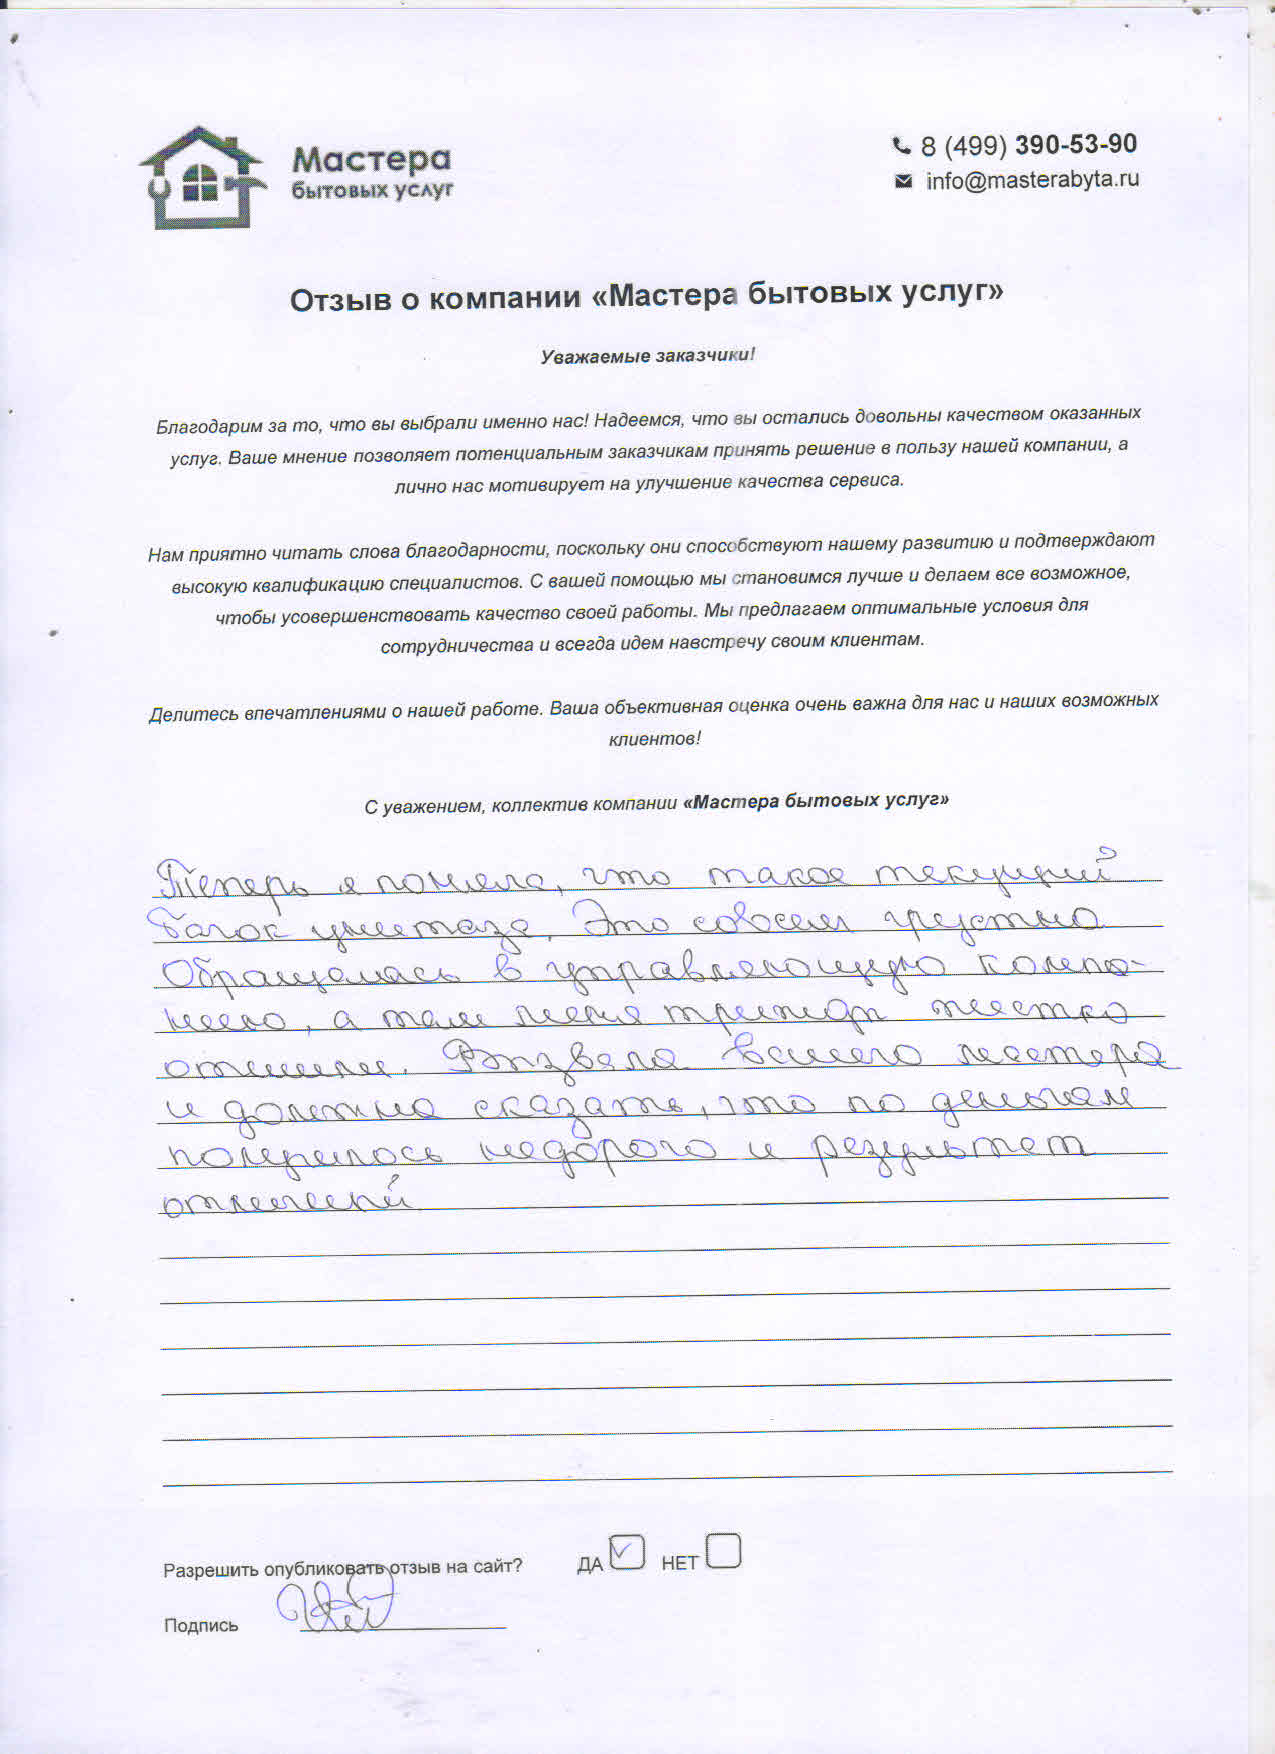 Мастера
бытовых услуг
8 (499) 390-53-90
info@masterabyta.ru
Отзыв о компании «Мастера бытовых услуг»
Уважаемые заказчики!
Благодарим за то, что вы выбрали именно нас! Надеемся, что вы остались довольны качеством оказанных
услуг. Ваше мнение позволяет потенциальным заказчикам принять решение в пользу нашей компании, а
лично нас мотивирует на улучшение качества сервиса.
Нам приятно читать слова благодарности, поскольку они способствуют нашему развитию и подтверждают
высокую квалификацию специалистов. С вашей помощью мы становимся лучше и делаем все возможное,
чтобы усовершенствовать качество своей работы. Мы предлагаем оптимальные условия для
сотрудничества и всегда идем навстречу своим клиентам.
Делитесь впечатлениями о нашей работе. Ваша объективная оценка очень важна для нас и наших возможных
клиентов!
С уважением, коллектив компании «Мастера бытовых услуг»
Теперь я поняла, что такое текущий
бачок унитаза. Это совсем грустно
Обращалась в управляющую компа-
нию, а там меня трижды жестко
отшили. Вызвала вашего мастера
и должна сказать, что по деньгам
получилось недорого и результат
отличный
Разрешить опубликовать отзыв на сайт? ДА НЕТ
Подпись